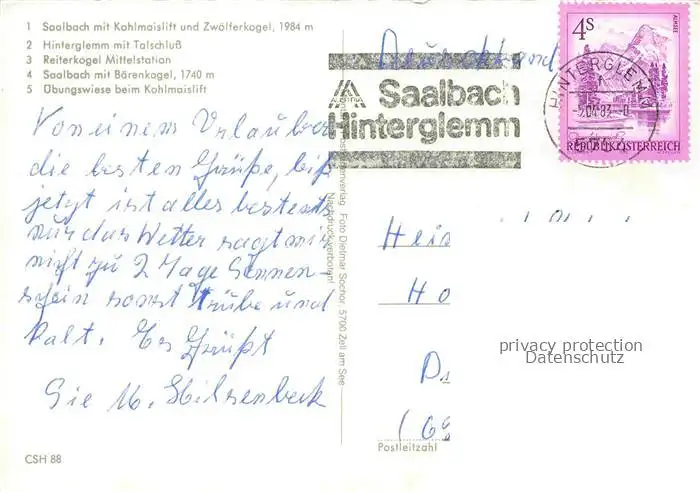 1 Saalbach mit Kohlmaislift und Zwölferkogel, 1984 m
2 Hinterglemm mit Talschluß
3 Reiterkogel Mittelstation
4 Saalbach mit Bärenkogel, 1740 m
5 Übungswiese beim Kohlmaislift
Von einem Urlauber
die besten Grüße, biß
jetzt ist alles bestens
nur das Wetter sagt mir
nicht zu 2 Tage Sonnen-
schein sonst trübe und
kalt. Es Grüßt
Sie M. Hilsenbeck
CSH 88
Foto Dietmar Sochor 5700 Zell am See
Nachdruck verboten!
Deutschland
Saalbach
Hinterglemm
HINTERGLEMM
4S
ALMSEE
REPUBLIK ÖSTERREICH
Hei
Ho
privacy protection
Datenschutz
Postleitzahl